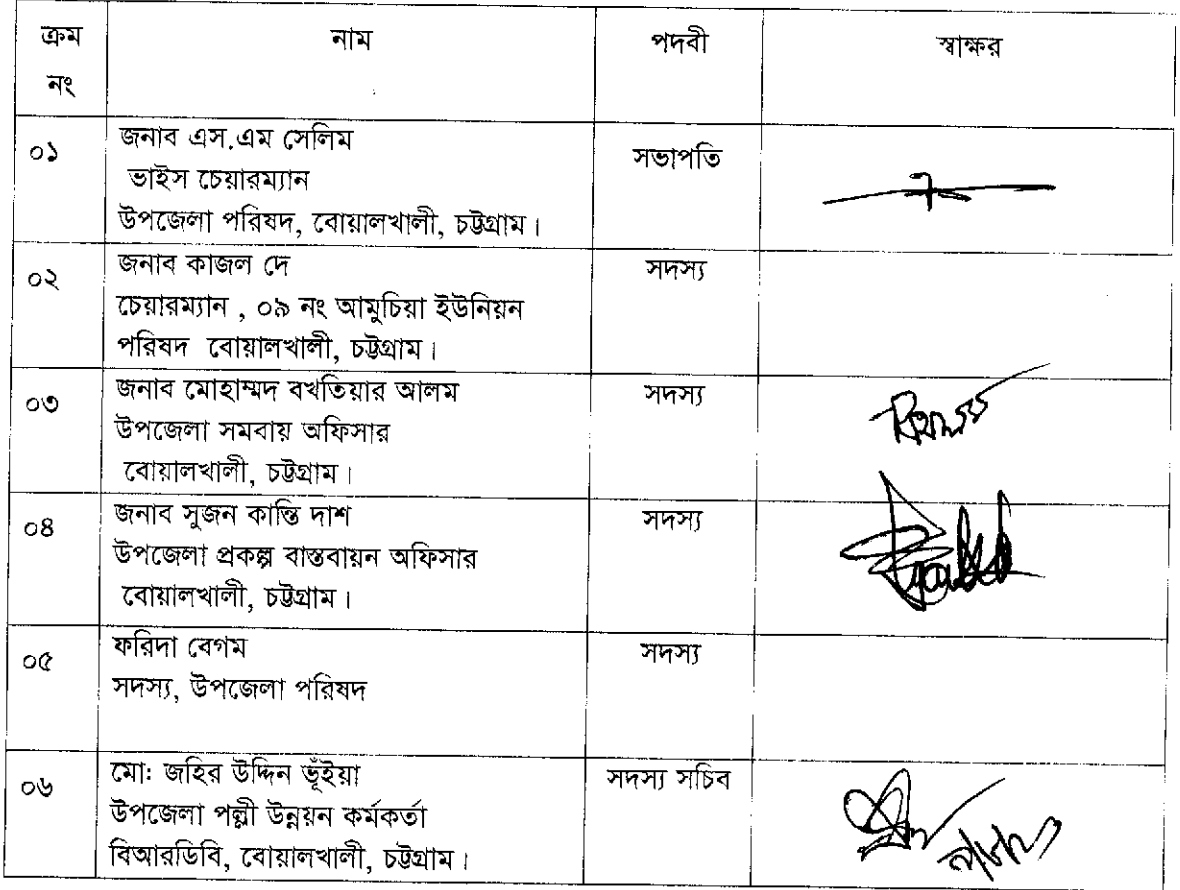 ক্রম নং নাম পদবী স্বাক্ষর
০১ জনাব এস.এম সেলিম সভাপতি
ভাইস চেয়ারম্যান
উপজেলা পরিষদ, বোয়ালখালী, চট্টগ্রাম।
০২ জনাব কাজল দে সদস্য
চেয়ারম্যান , ০৯ নং আমুচিয়া ইউনিয়ন
পরিষদ বোয়ালখালী, চট্টগ্রাম।
০৩ জনাব মোহাম্মদ বখতিয়ার আলম সদস্য
উপজেলা সমবায় অফিসার
বোয়ালখালী, চট্টগ্রাম।
০৪ জনাব সুজন কান্তি দাশ সদস্য
উপজেলা প্রকল্প বাস্তবায়ন অফিসার
বোয়ালখালী, চট্টগ্রাম।
০৫ ফরিদা বেগম সদস্য
সদস্য, উপজেলা পরিষদ
০৬ মো: জহির উদ্দিন ভূঁইয়া সদস্য সচিব
উপজেলা পল্লী উন্নয়ন কর্মকর্তা
বিআরডিবি, বোয়ালখালী, চট্টগ্রাম।